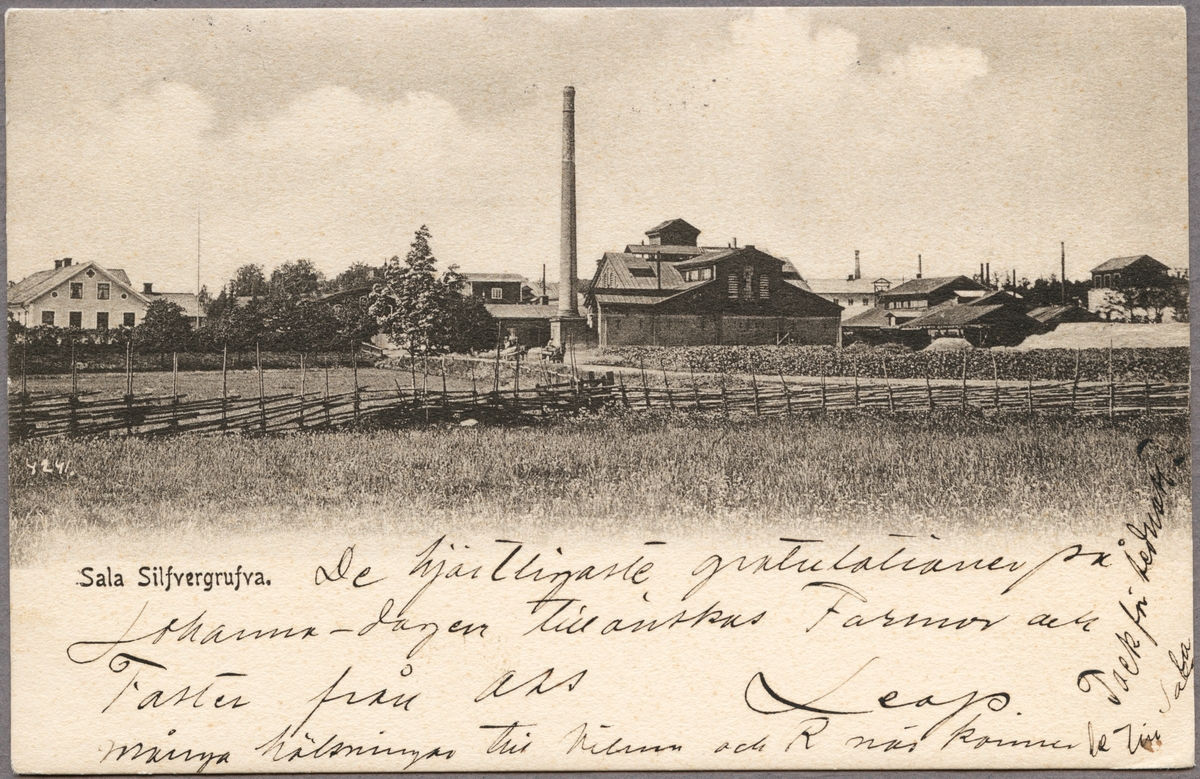 4241.
Sala Silfvergrufva.
De hjärtligaste gratulationer på
Johanna-dagen tillönskas Farmor och
Faster från oss
många hälsningar till och R när kommer
Tack för
Sala